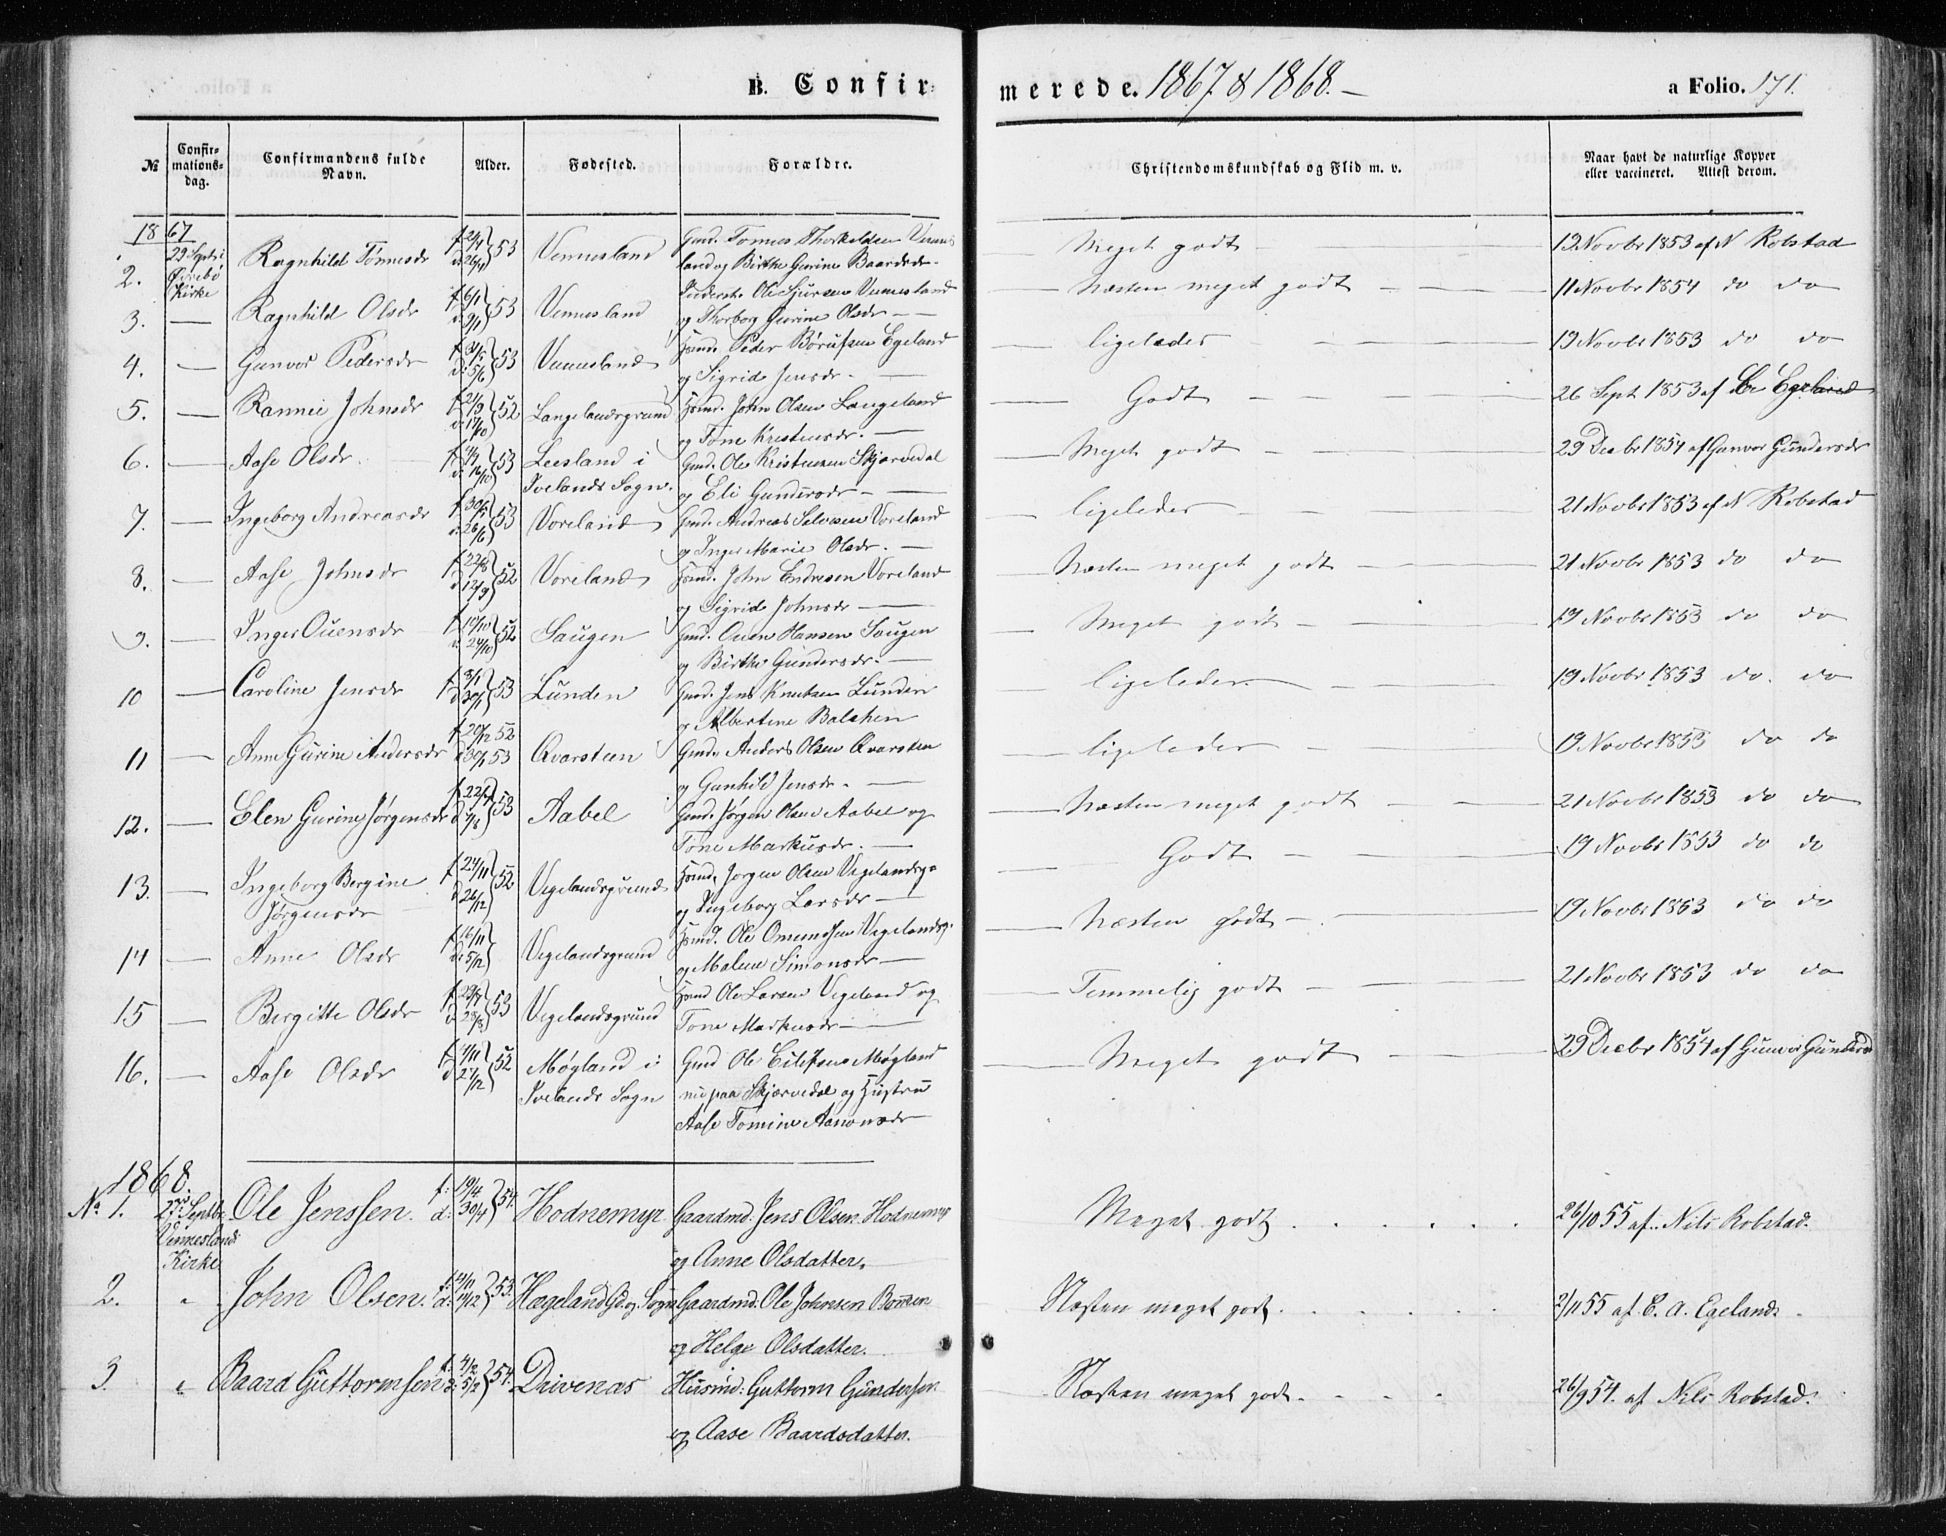 B. Confirmerede. 1867 & 1868. — a Folio. 171.
№ Confirmationsdag. Confirmandens fulde Navn. Alder. Fødested. Forældre. Christendomskundskab og Flid m. v. Naar havt de naturlige Kopper eller vaccineret. Attest derom.
1867
29 Septr i Øvrebö Kirke
2. Ragnhild Tönnesdr 53 Vennesland Gmd. Tönnes Thorkeldsen Vennesland og Birthe Gurine Baardsdr — Meget godt — 19 Novbr 1853 af N Robstad
3. — Ragnhild Olsdr f 6/1 d 9/1 53 Vennesland Ole Sjursen Vennesland og Thorborg Gurine Olsdr — Næsten meget godt — 11 Novbr 1854 do do
4. — Gunvor Pedersdr d 5/6 53 Vennesland Huusmd. Peder Egeland og Sigrid Jensdr. — ligeledes — 19 Novbr 1853 do do
5. — Rannei Johnsdr f 21/9 d 17/10 52 Langelandsgrund Huusmd. John Olsen Langeland og Tone Kristensdr. — Godt — 26 Sept 1853 af Egeland
6. — Aase Olsdr. 53 Leesland i Ivelands Sogn. Gmd. Ole Kristensen Skjærvedal og Eli Gundersdr — Meget godt — 29 Decbr 1854 af Gunvor Gundersdr
7. — Ingeborg Andreasdr f 30/5 d 26/6 53 Voreland Gmd. Andreas Salvesen Voreland og Inger Marie Olsdr. — ligeledes — 21 Novbr 1853 af N Robstad
8. — Aase Johnsdr f 22/8 d 12/9 52 Voreland Huusmd. John Endresen Voreland og Sigrid Johnsdr — Næsten meget godt — 21 Novbr 1853 do do
9. — Inger Ouensdr f 10/10 d 24/10 52 Saugen Gmd. Ouen Hansen Saugen og Birthe Gundersdr. — Meget godt — 19 Novbr 1853 do do
10 — Caroline Jensdr f 8/1 d 30/1 53 Lunden Gmd. Jens Knutsen Lunden og Albertine Balchen ligeledes — 19 Novbr 1853 do. do
11 — Anne Gurine Andersdr f 20/12 52 d 30/1 53 Qvarsteen Gmd. Anders Olsen Qvarsten og Gunhild Jensdr. — ligeledes — 19 Novbr 1853 do do
12. — Elen Gurine Jørgensdr f 22/7 53 Aabel Gmd. Jørgen Olsen Aabel og Tone Markusdr. — Næsten meget godt — 21 Novbr 1853 do do
13. — Ingeborg Bergine Jörgensdr f 24/11 d 26/12 52 Vegelandsgrund Huusmd. Jorgen Olsen Vegelandsgr og Ingeborg Larsdr — Godt — 19 Novbr 1853 do do
14 — Anne Olsdr f 16/11 d 5/12 Vegelandsgrund Huusmd. Ole Omundsen Vegelandsgr. og Malene Simonsdr — Næsten godt — 19 Novbr 1853 do do
15 — Bergitte Olsdr f 29/7 d 28/8 53 Vegelandsgrund Huusmd Ole Larsen Vegeland og Tone Markusdr — Temmelig godt — 21 Novbr 1853 do do
16. — Aase Olsdr d 27/12 52 Møgland i Ivelands Sogn Gmd Ole Eilefsen Møgland nu paa Skjærvedal og Hustru Aase Tomine Aanonsdr Meget godt — 29 Decbr 1854 af Gunvor Gundersdr
1868.
No 1. 27 Septbr. Vennesland Kirke Ole Jenssen. f: 19/4 d: 30/4 54. Hodnemyr Gaardmd: Jens Olsen Hodnemyr og Anne Olsdatter. Meget godt . . . . . 26/10 55 af Nils Robstad.
2. " John Olsen. f: d: 11/12 53. Hægeland Gd og Sogn Gaardmd: Ole Johnsen Bommen og Helge Olsdatter. Næsten meget godt . . . . . 2/11 55 af E. A. Egeland.
3. " Baard Guttormsen f: 4/2 d: 5/2 54. Drivenæs Husmd: Guttorm Gundersen og Aase Baardsdatter. Næsten meget godt . . . . 26/9 54. af Nils Robstad.